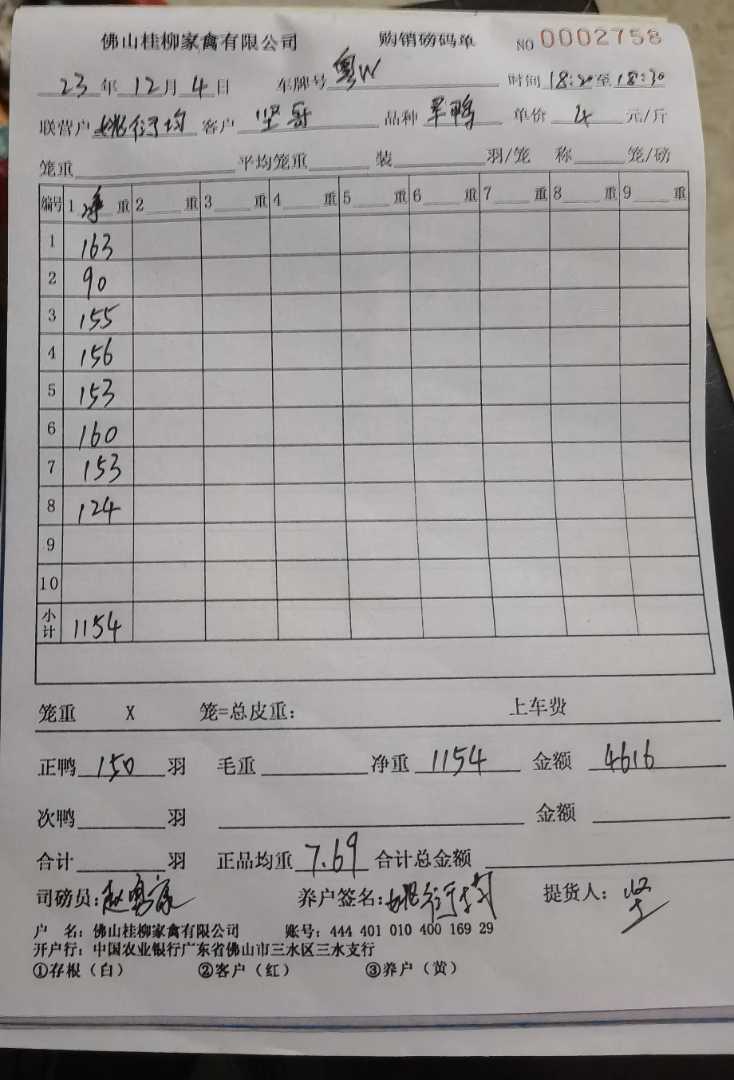 佛山桂柳家禽有限公司 购销磅码单 NO 0002758
23年12月4日 车牌号 粤W 时间18:20至18:30
联营户姚衍均 客户 坚哥 品种 旱鸭 单价 4 元/斤
笼重 平均笼重 装 羽/笼 称 笼/磅
编号 1 净 重 2 重 3 重 4 重 5 重 6 重 7 重 8 重 9 重
1 163
2 90
3 155
4 156
5 153
6 160
7 153
8 124
9
10
小计 1154
笼重 X 笼=总皮重: 上车费
正鸭 150 羽 毛重 净重 1154 金额 4616
次鸭 羽 金额
合计 羽 正品均重 7.69 合计总金额
司磅员: 赵 养户签名: 姚衍均 提货人: 坚
户 名: 佛山桂柳家禽有限公司 账号: 444 401 010 400 169 29
开户行: 中国农业银行广东省佛山市三水区三水支行
①存根(白) ②客户(红) ③养户(黄)